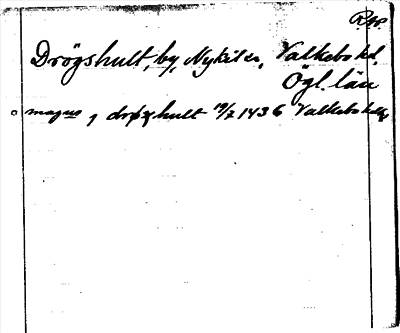 Drögshult, by, Nykil sn, Valkebo hd,
Ögl. län
magus j drøxhult 19/2 1436 Valkebo